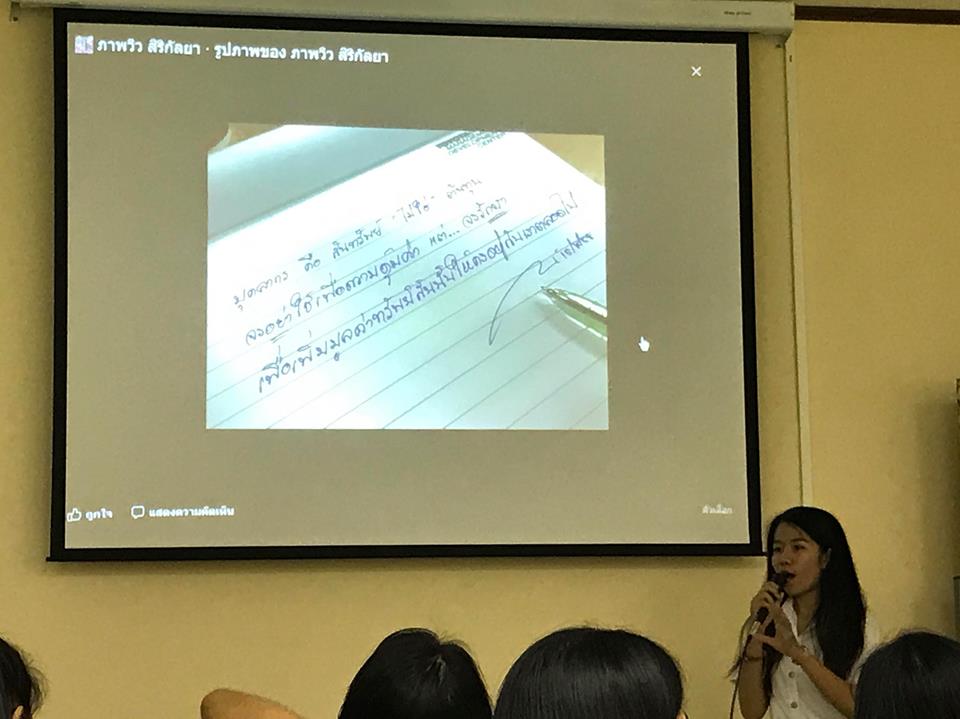 ภาพวิว สิริกัลยา · รูปภาพของ ภาพวิว สิริกัลยา
DEVELOPMENT
CENTER
บุคลากร คือ สินทรัพย์ "ไม่ใช่" ต้นทุน
จงอย่าใช้เพื่อความคุ้มค่า แต่... จงรักษา
เพื่อเพิ่มมูลค่าทรัพย์สินนั้นให้คงอยู่กับเราตลอดไป
ถูกใจ
แสดงความคิดเห็น
ตัวเลือก